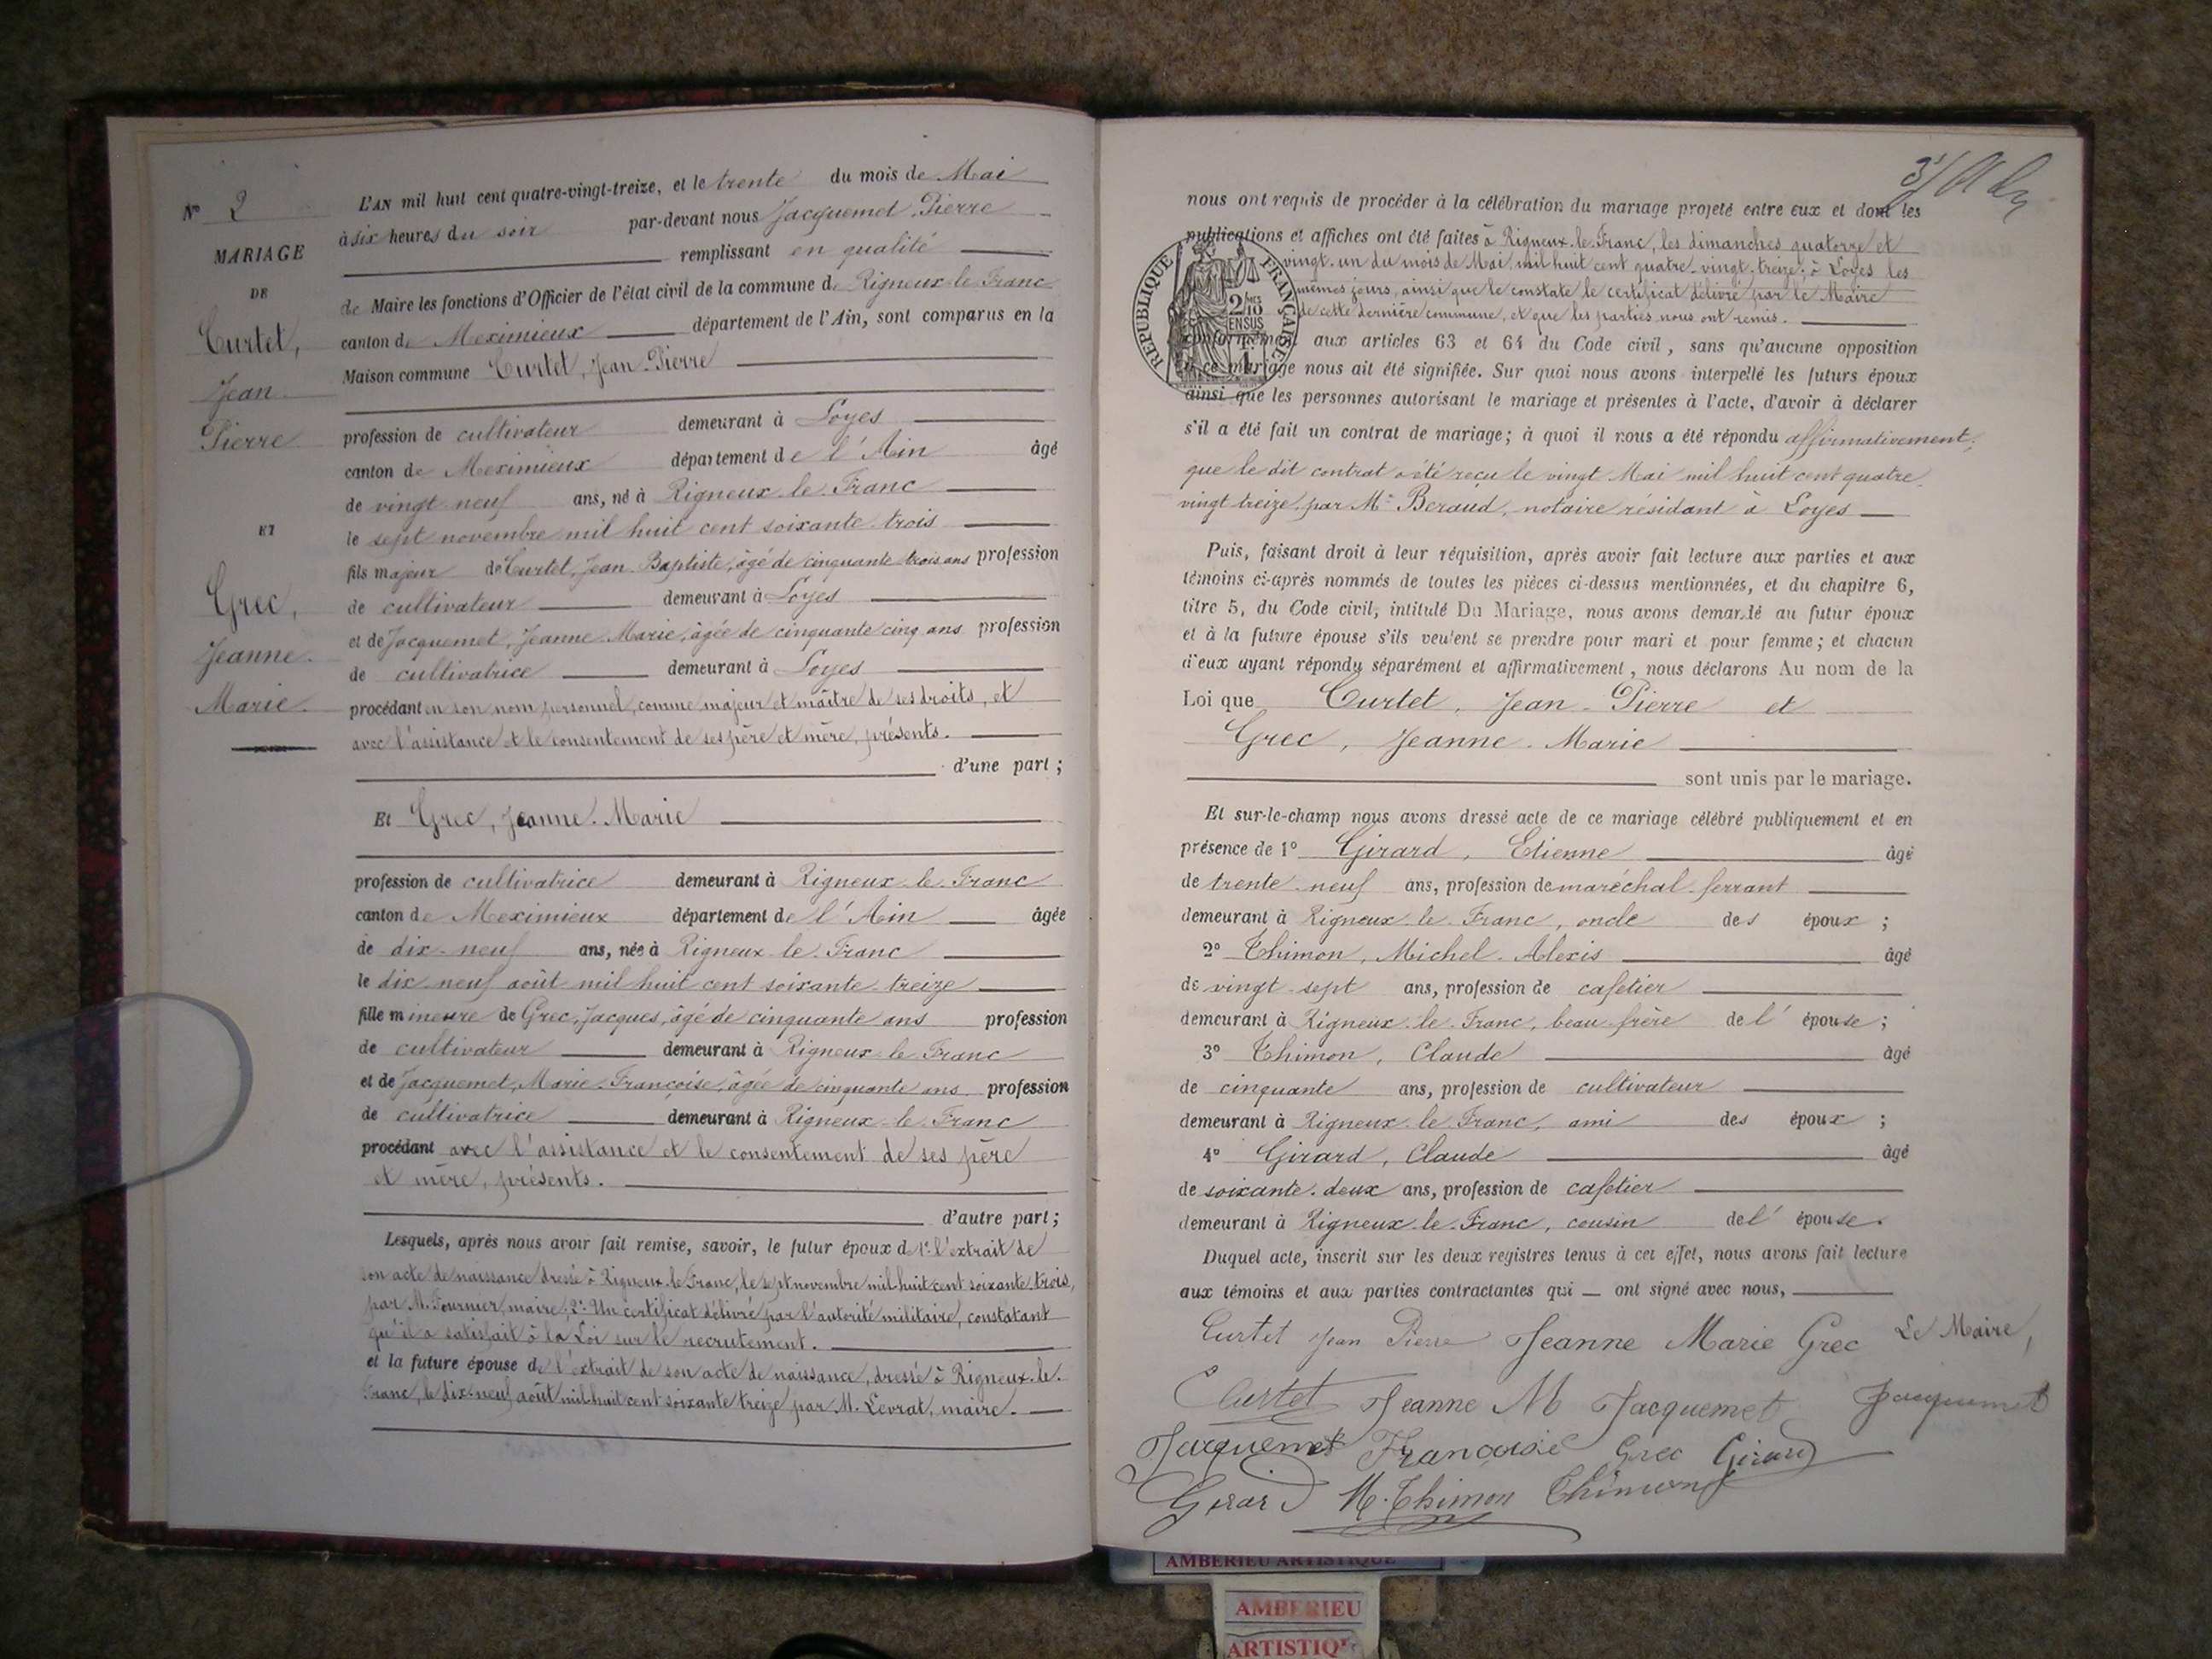 N° 2
MARIAGE
DE
Curtet,
Jean
Pierre
ET
Grec,
Jeanne.
Marie.
L'AN mil huit cent quatre-vingt-treize, et le trente du mois de Mai
à six heures du soir par-devant nous Jacquemet, Pierre
remplissant en qualité
de Maire les fonctions d'Officier de l'état civil de la commune de Rigneux-le-Franc
canton de Meximieux département de l'Ain, sont comparus en la
Maison commune Curtet, Jean-Pierre
profession de cultivateur demeurant à Loyes
canton de Meximieux département de l'Ain âgé
de vingt-neuf ans, né à Rigneux-le-Franc
le sept novembre mil huit cent soixante-trois
fils majeur de Curtet, Jean-Baptiste, âgé de cinquante trois ans profession
de cultivateur demeurant à Loyes
et de Jacquemet, Jeanne-Marie, âgée de cinquante cinq ans profession
de cultivatrice demeurant à Loyes
procédant en son nom personnel, comme majeur et maître de ses droits, et
avec l'assistance et le consentement de ses père et mère, présents.
d'une part ;
Et Grec, Jeanne-Marie
profession de cultivatrice demeurant à Rigneux-le-Franc
canton de Meximieux département de l'Ain âgée
de dix-neuf ans, née à Rigneux-le-Franc
le dix-neuf août mil huit cent soixante-treize
fille mineure de Grec, Jacques, âgé de cinquante ans profession
de cultivateur demeurant à Rigneux-le-Franc
et de Jacquemet, Marie-Françoise, âgée de cinquante ans profession
de cultivatrice demeurant à Rigneux-le-Franc
procédant avec l'assistance et le consentement de ses père
et mère, présents.
d'autre part ;
Lesquels, après nous avoir fait remise, savoir, le futur époux de 1°: l'extrait de
son acte de naissance dressé à Rigneux-le-Franc, le sept novembre mil-huit cent soixante-trois,
par M. Fournier, maire; 2°: Un certificat délivré par l'autorité militaire, constatant
qu'il a satisfait à la Loi sur le recrutement.
et la future épouse de l'extrait de son acte de naissance, dressé à Rigneux-le-
Franc, le dix-neuf août mil-huit cent soixante treize par M. Levrat, maire.
nous ont requis de procéder à la célébration du mariage projeté entre eux et dont les
publications et affiches ont été faites à Rigneux-le-Franc, les dimanches quatorze et
vingt-un du mois de Mai, mil-huit cent quatre-vingt-treize; à Loyes les
mêmes jours, ainsi que le constate le certificat délivré par le Maire
de cette dernière commune, et que les parties nous ont remis.
RÉPUBLIQUE FRANÇAISE
2/10 EN SUS
conformément aux articles 63 et 64 du Code civil, sans qu'aucune opposition
à ce mariage nous ait été signifiée. Sur quoi nous avons interpellé les futurs époux
ainsi que les personnes autorisant le mariage et présentes à l'acte, d'avoir à déclarer
s'il a été fait un contrat de mariage ; à quoi il nous a été répondu affirmativement,
que le dit contrat a été reçu le vingt Mai mil huit cent quatre
vingt treize, par Me Beraud, notaire résidant à Loyes
Puis, faisant droit à leur réquisition, après avoir fait lecture aux parties et aux
témoins ci-après nommés de toutes les pièces ci-dessus mentionnées, et du chapitre 6,
titre 5, du Code civil, intitulé Du Mariage, nous avons demandé au futur époux
et à la future épouse s'ils veulent se prendre pour mari et pour femme ; et chacun
d'eux ayant répondu séparément et affirmativement, nous déclarons Au nom de la
Loi que Curtet, Jean-Pierre et
Grec, Jeanne-Marie
sont unis par le mariage.
Et sur-le-champ nous avons dressé acte de ce mariage célébré publiquement et en
présence de 1° Girard, Etienne âgé
de trente-neuf ans, profession de maréchal-ferrant
demeurant à Rigneux-le-Franc, oncle des époux ;
2° Thimon, Michel-Alexis âgé
de vingt-sept ans, profession de cafetier
demeurant à Rigneux-le-Franc, beau-frère de l'épouse ;
3° Thimon, Claude âgé
de cinquante ans, profession de cultivateur
demeurant à Rigneux-le-Franc, ami des époux ;
4° Girard, Claude âgé
de soixante-deux ans, profession de cafetier
demeurant à Rigneux-le-Franc, cousin de l'épouse.
Duquel acte, inscrit sur les deux registres tenus à cet effet, nous avons fait lecture
aux témoins et aux parties contractantes qui ont signé avec nous,
Curtet Jean Pierre Jeanne Marie Grec Le Maire,
Curtet Jeanne M Jacquemet Jacquemet
Jacquemet Françoise Grec Girard
Girard M. Thimon Thimon
AMBERIEU ARTISTIQUE
AMBERIEU
ARTISTIQ